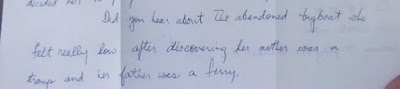 decided her to
Did you hear about the abandoned tugboat who
felt really low after discovering her mother was a
tramp and her father was a ferry.